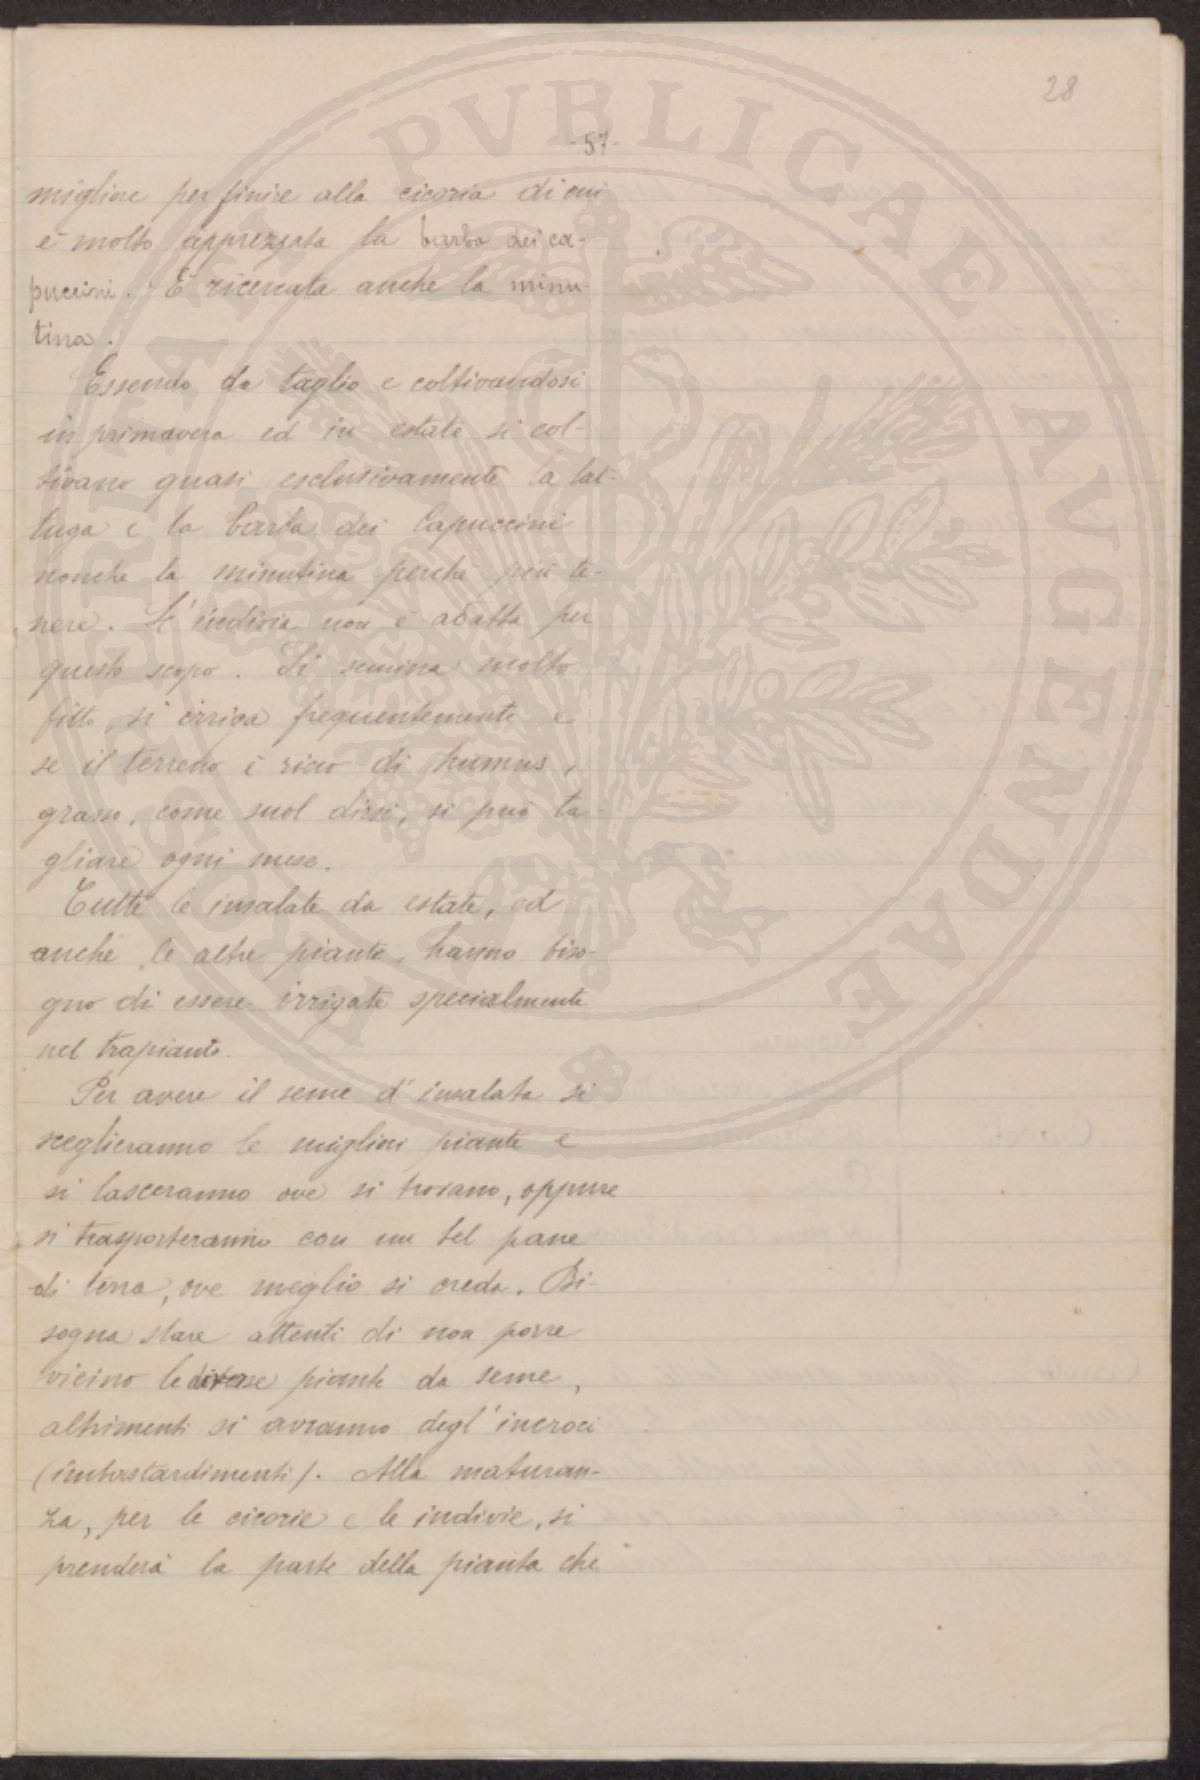 28
-57-
migliore per finire alla cicoria di cui
è molto apprezzata la barba dei ca-
puccini. È ricercata anche la minu-
tina.
Essendo da taglio e coltivandosi
in primavera ed in estate si col-
tivano quasi esclusivamente la lat-
tuga e la barba dei Capuccini
nonchè la minutina perchè più te-
nere. L'indivia non è adatta per
questo scopo. Si semina molto
fitto, si irriga frequentemente e
se il terreno è ricco di humus,
grasso, come suol dirsi, si può ta-
gliare ogni mese.
Tutte le insalate da estate, ed
anche le altre piante, hanno biso-
gno di essere irrigate specialmente
nel trapianto.
Per avere il seme d'insalata si
sceglieranno le migliori piante e
si lasceranno ove si trovano, oppure
si trasporteranno con un bel pane
di terra, ove meglio si creda. Bi-
sogna stare attenti di non porre
vicino le diverse piante da seme,
altrimenti si avranno degl'incroci
(imbastardimenti). Alla maturan-
za, per le cicorie e le indivie, si
prenderà la parte della pianta che
PUBLICAE AVGENDAE